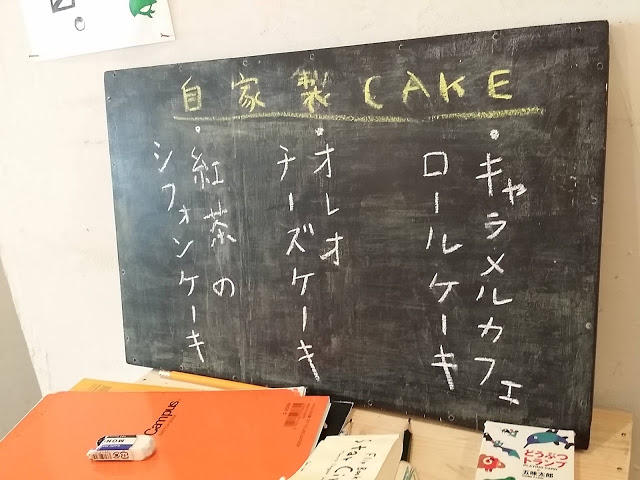 自家製CAKE
・キャラメルカフェ
ロールケーキ
・オレオ
チーズケーキ
・紅茶の
シフォンケーキ
Campus
MONO
どうぶつ
トランプ
五味太郎